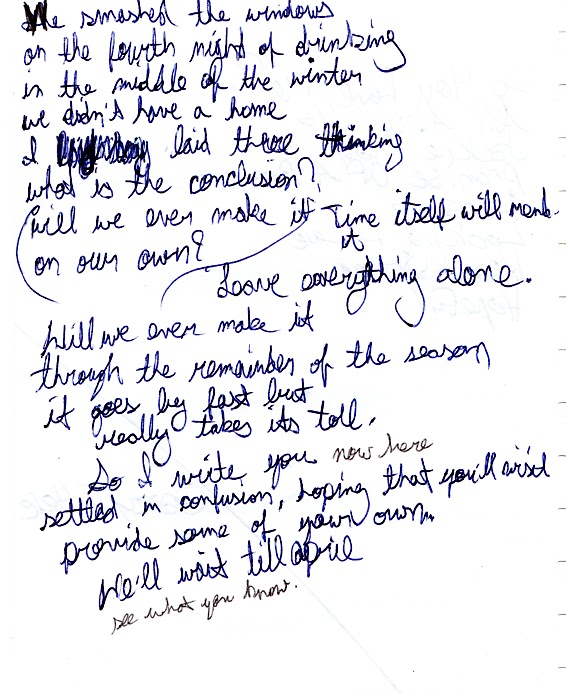 We smashed the windows
on the fourth night of drinking
in the middle of the winter
we didn's have a home
I laid there thinking
what is the conclusion?
(will we ever make it
on our own?
Time itself will mend
it
Leave everything alone.
Will we ever make it
through the remainder of the season
it goes by fast but
really takes its toll.
So I write you now here
settled in confusion, hoping that you'll visit
provide some of your own.
We'll wait till april
see what you know.